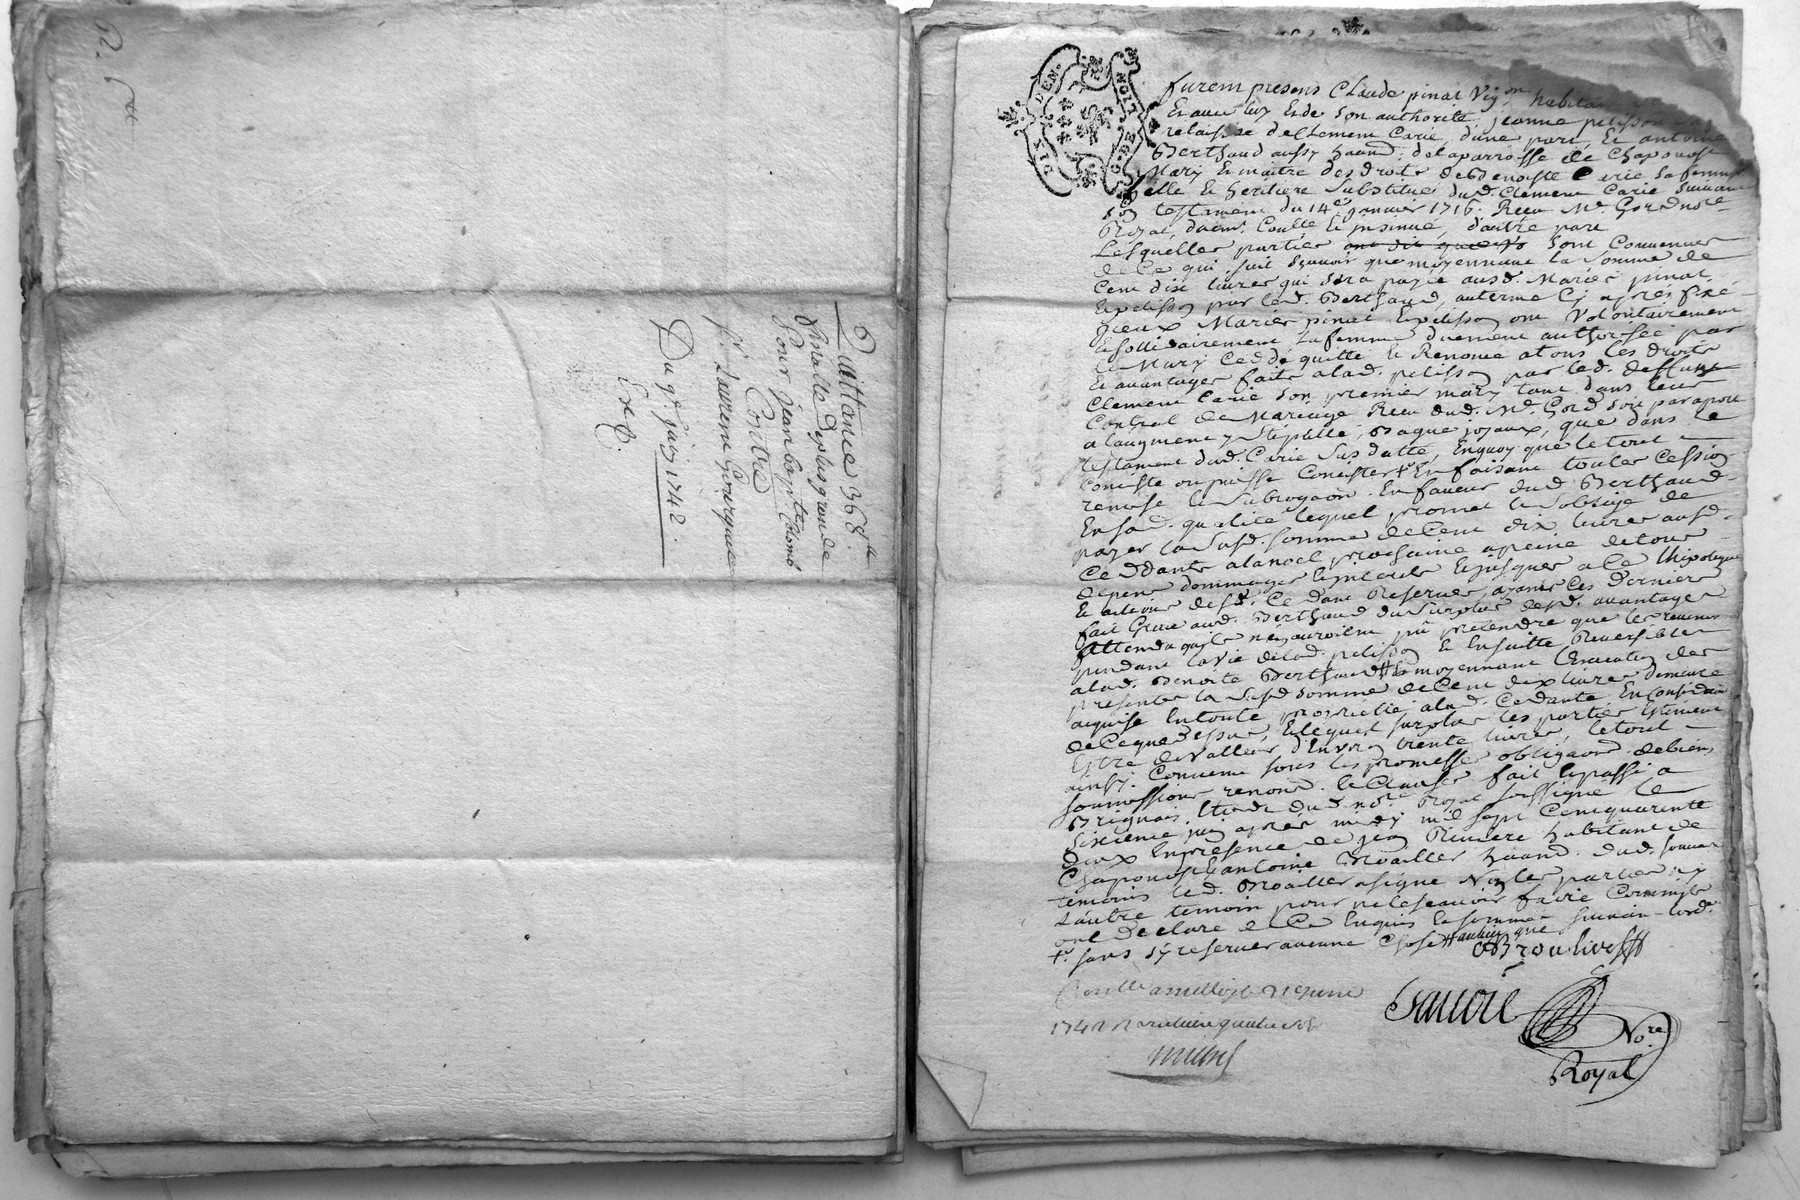 Quittance 368.tt
finalle de plus grande
Pour jean baptte Colomb
Contre
Sr. Laurent Gourgue
Du 9e. juin 1742.
Exp.
DIX DEN.
G. DE LION
furent presens Claude pinat Vig.on habitan
Et avec luy Et de son authorité, jeanne pelisson
relaissée de Clement Carie, d'une part, Et antoine
Berthaud aussy haand. de la parroisse de Chaponost
Mary Et maitre des droits de Benoiste Carie sa femme
Elle Et heritiere Substituée dud. Clement Carie Suivant
son testament du 14e. janvier 1716. Receu Me. Gord nore
Royal, duem. Coullé Et jnsinué, d'autre part
Lesquelles parties ont dit que Sont Convenues
de Ce qui Suit Sçavoir que moyennant la Somme de
Cent dix livres qui sera payée ausd. Mariés pinat
Et pelisson par led. Berthaud, au terme Cy aprés fixé
Iceux Mariés pinat Et pelisson ont Volontairement
Et sollidairement La femme duement authorisée par
le Mary Cedé quitté Et Renoncé a tous les droits
Et avantages faits a lad. pelisson par led. deffunt
Clement Carie son premier mary tant dans leur
Contrat de Mariage Receu dud. Me. Gord soit par aport
a l'augment y Stipullé, Bague joyaux, que dans le
testament dud. Carie Susdatté, En quoy que le tout
Conciste ou puisse Concister +. En faisant toutes Cession
remise Et Subrogaon. En faveur dud. Berthaud
En sad. qualité lequel promet Et S'oblige de
payer la Susd. Somme de Cent dix livres ausd.
Cedants a la noel prochaine a peine de tous
depens dommages Et jnterets Et jusques a Ce L'hipoteque
Et actions desd. Cedants Reservés, ayants Ces Derniers
fait Grace aud. Berthaud du Surplus desd. avantages
attendu qu'ils n'y auroient pû pretendre que les revenus
pendant la vie de lad. pelisson Et Ensuitte Reversibles
a lad. Benoite Berthaud # Et moyennant L'Execution des
presentes la Susd. Somme de Cent dix livres demeure
acquise En toute proprieté a lad. Cedante En Consideraon
de Ce que dessus, Et lequel surplus les parties Estiment
Estre de Valleur d'Environ trente livres, le tout
ainsy Convenu sous les promesses obligaons. de biens
soumissions renonc. Et Clauses fait Et passé a
Brignais Etude dud. nore. Royal soussigné le
Sixieme juin aprés midy mil sept Cent quarente
deux En presence de jean Riviere habitant de
Chaponost Et antoine Broallier haand. dud.
temoins led. Broallier a signé Non les parties ny
L'autre temoin pour ne le Scavoir faire Comme ils
ont declaré de Ce Enquis Et sommés Suivan lord.
+. sans s'y reserver aucune Chose
Nore.
Royal